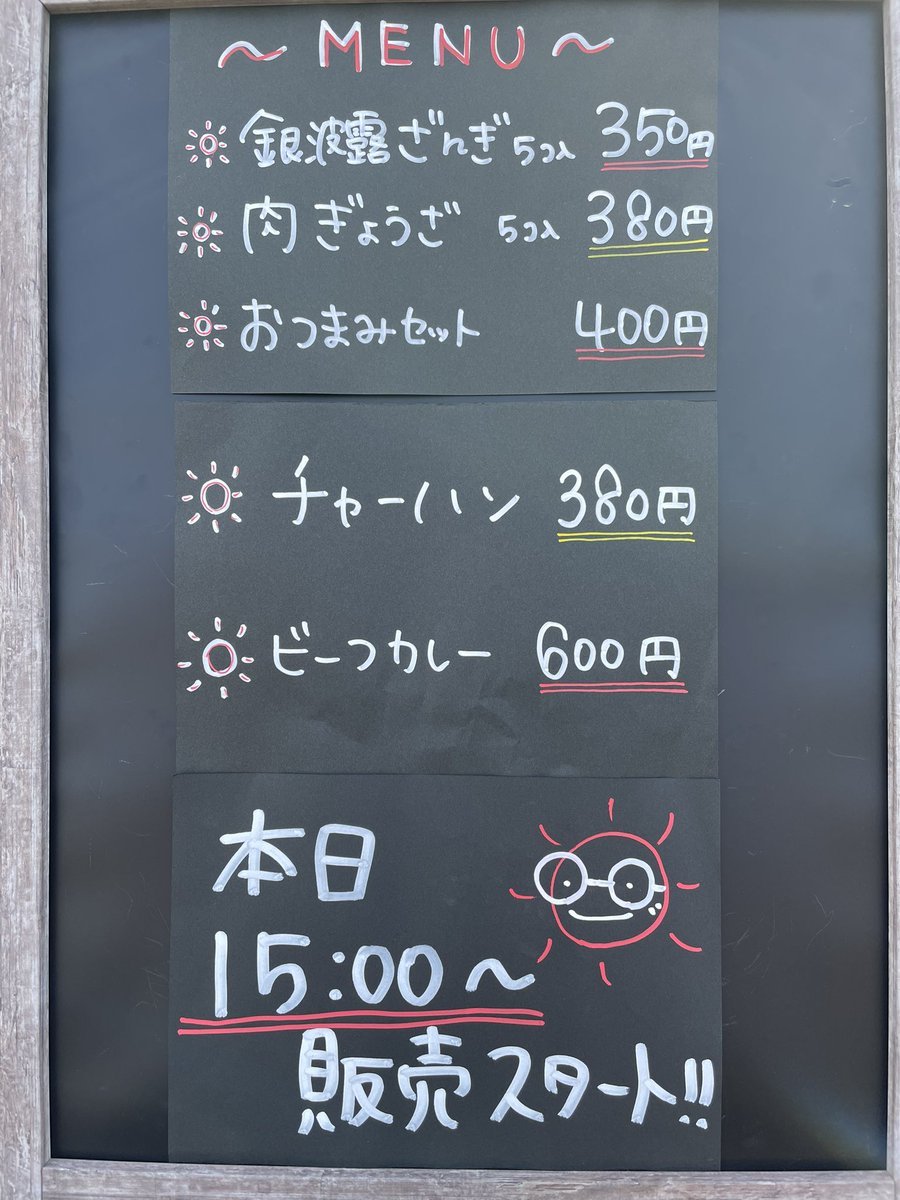 ～MENU～
銀波露ざんぎ 5コ入 350円
肉ぎょうざ 5コ入 380円
おつまみセット 400円
チャーハン 380円
ビーフカレー 600円
本日
15:00～
販売スタート!!